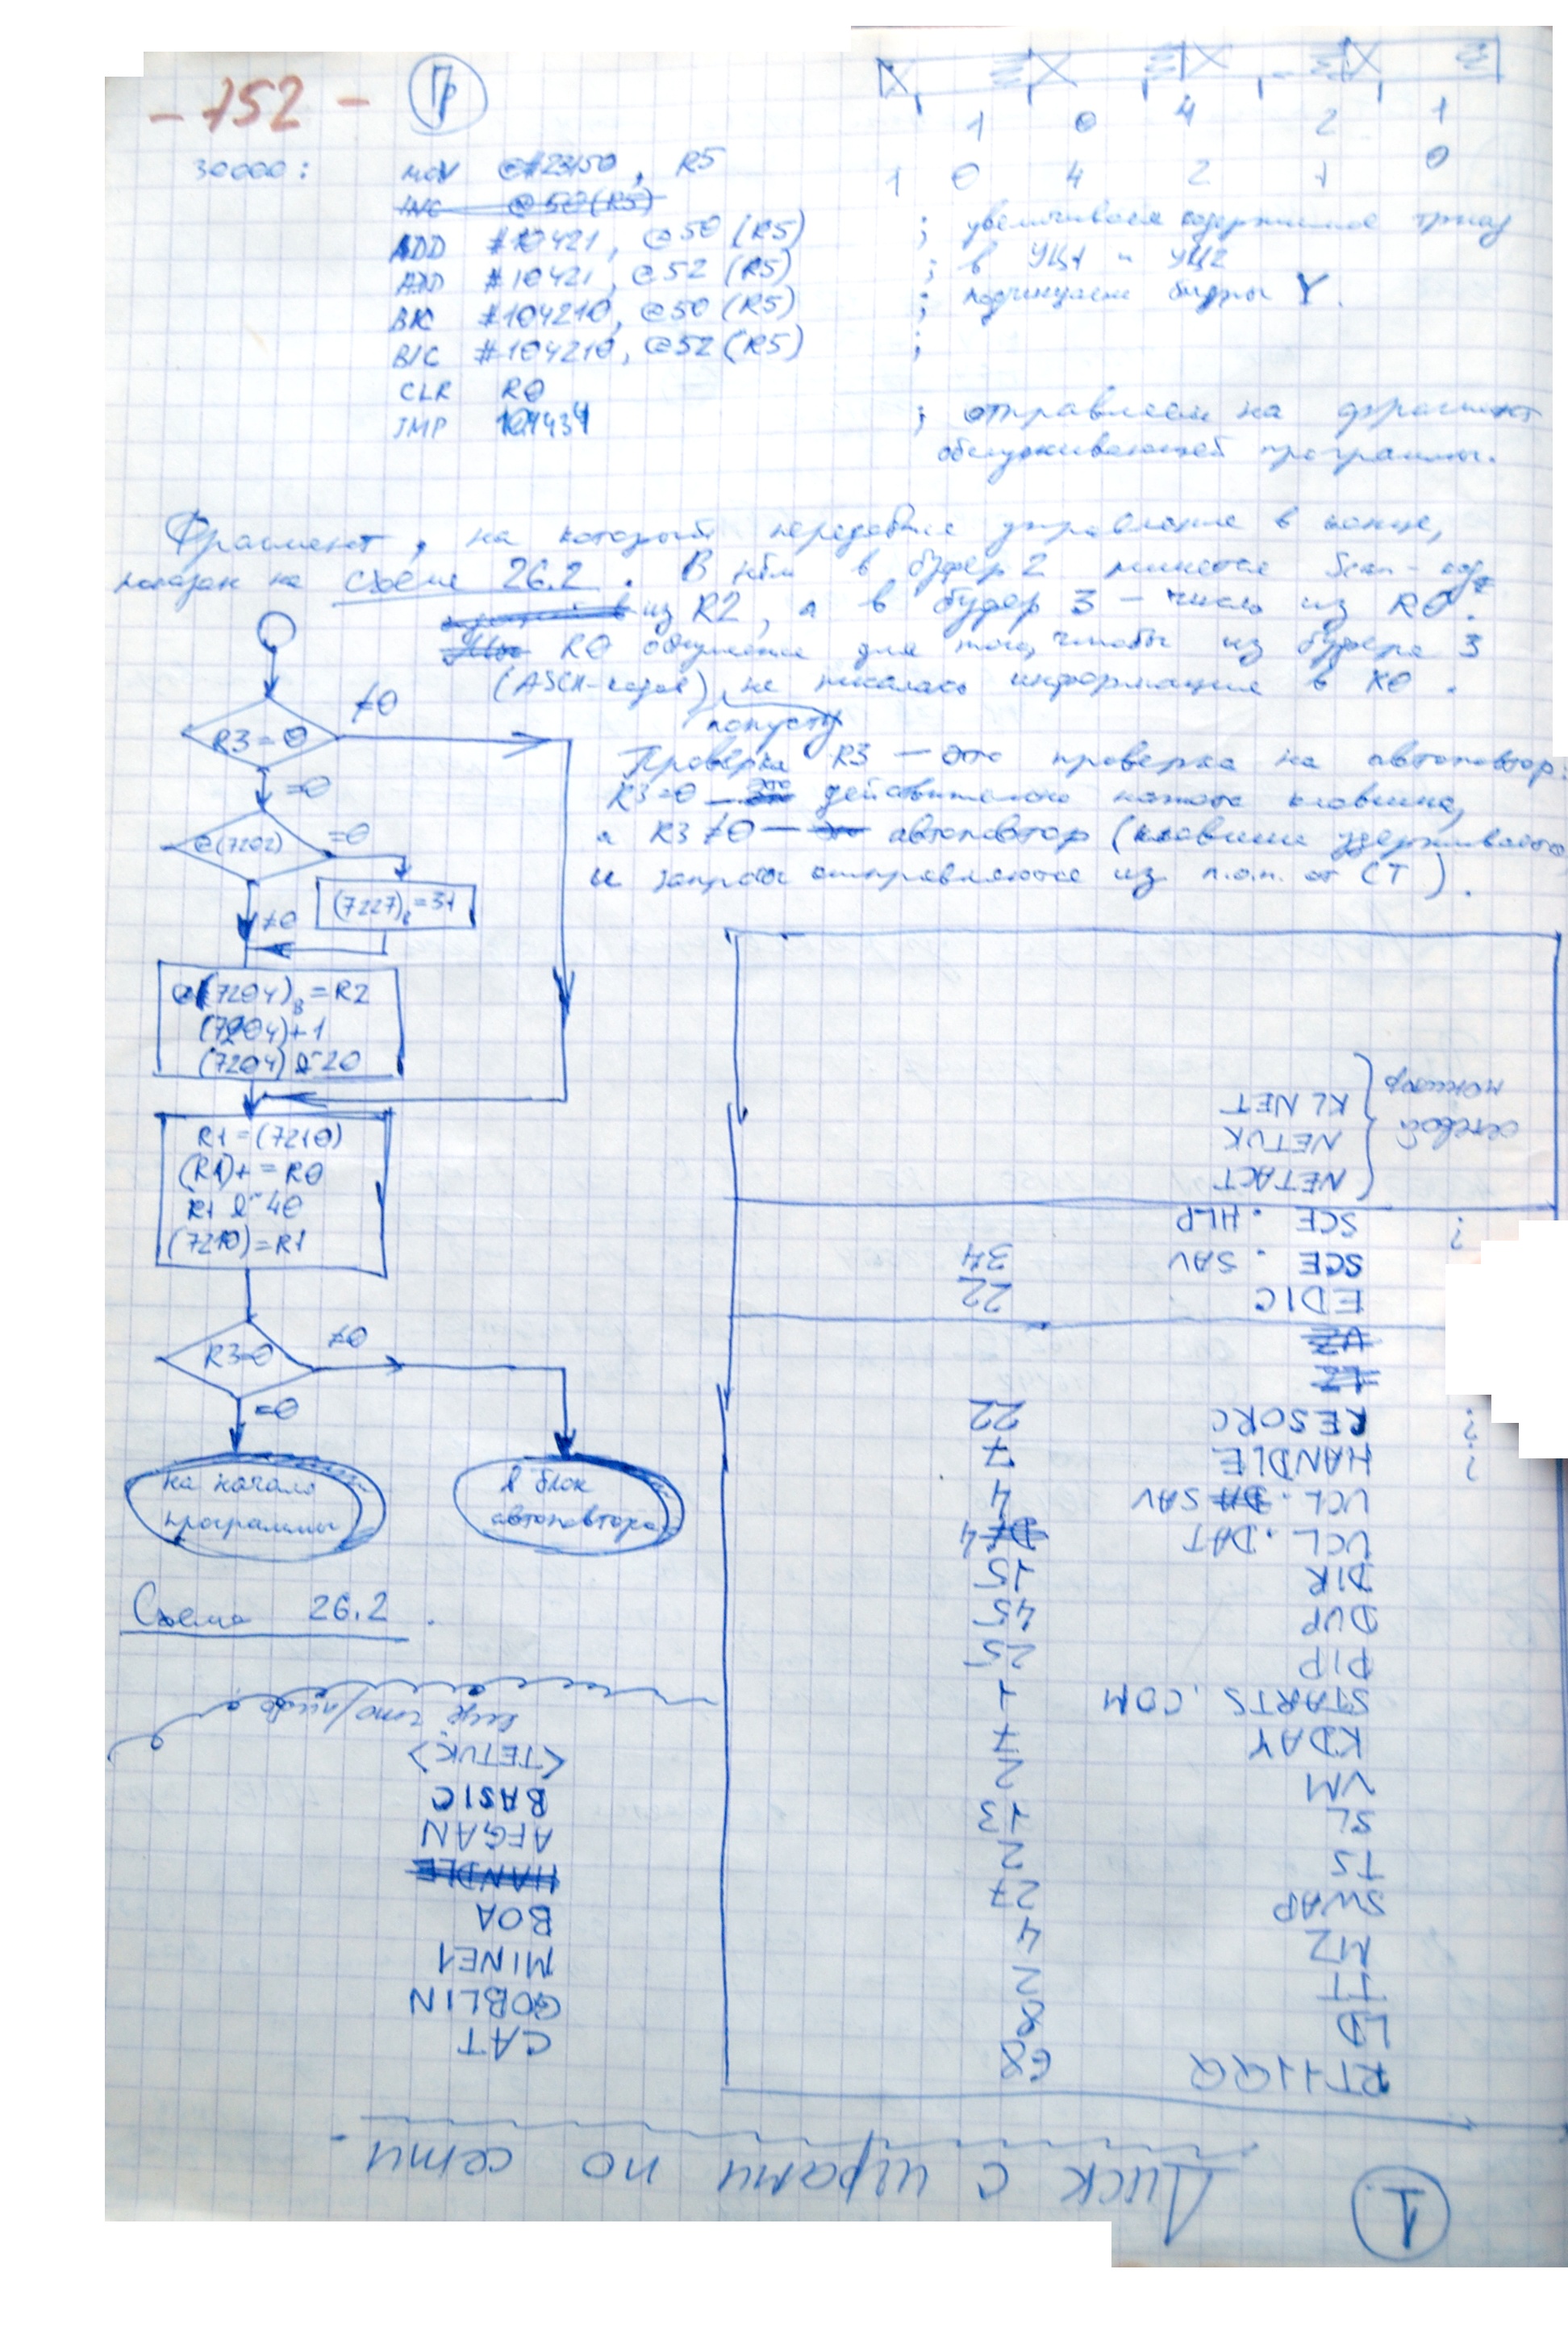 - 752 -
Пр
1 0 4 2 1
1 0 4 2 1 0
30000: MOV @#23150, R5
INC @50(R5)
ADD #10421, @50(R5) ; увеличиваем содержимое триад
ADD #10421, @52(R5) ; в УЦ1 и УЦ2
BIC #104210, @50(R5) ; подчищаем биты Y.
BIC #104210, @52(R5) ;
CLR R0
JMP 101434 ; отправляем на фрагмент
обслуживающей программы.
Фрагмент, на который передаётся управление в конце,
показан на схеме 26.2. В нём в буфер 2 пишется Scan-код
из R2, а в буфер 3 - число из R0.
R0 обнуляется для того, чтобы из буфера 3
(ASCII-кодов) не писалась информация в R0.
попусту
Проверка R3 — это проверка на автоповтор:
R3=0 — действительно нажата клавиша,
а R3≠0 — автоповтор (клавиша удерживается
и запросы отправляются из п.о.п. от СТ).
R3=0
≠0
=0
@(7202)
=0
≠0
(7227)в=31
@(7204)в=R2
(7204)+1
(7204) &~20
R1=(7210)
(R1)+=R0
R1 &~40
(7210)=R1
R3=0
≠0
=0
на начало
программы
в блок
автоповтора
Схема 26.2.
1
Диск с играми по сети.
RT11QQ 68
LD 8
TT 2
MZ 4
SWAP 27
TS 2
SL 13
VM 2
KDAY 7
STARTS.COM 1
PIP 25
DUP 45
DIR 15
UCL.DAT 4
UCL.SAV 4
HANDLE 7 ?
RESORC 22 ?
LZ
UZ
EDIC 22
SCE.SAV 34
SCE.HLP ?
NETACT
NETUK
KLNET
сетевой
монитор
CAT
GOBLIN
MINE1
BOA
HANDLE
AFGAN
BASIC
<TETUK>
ещё что/либо